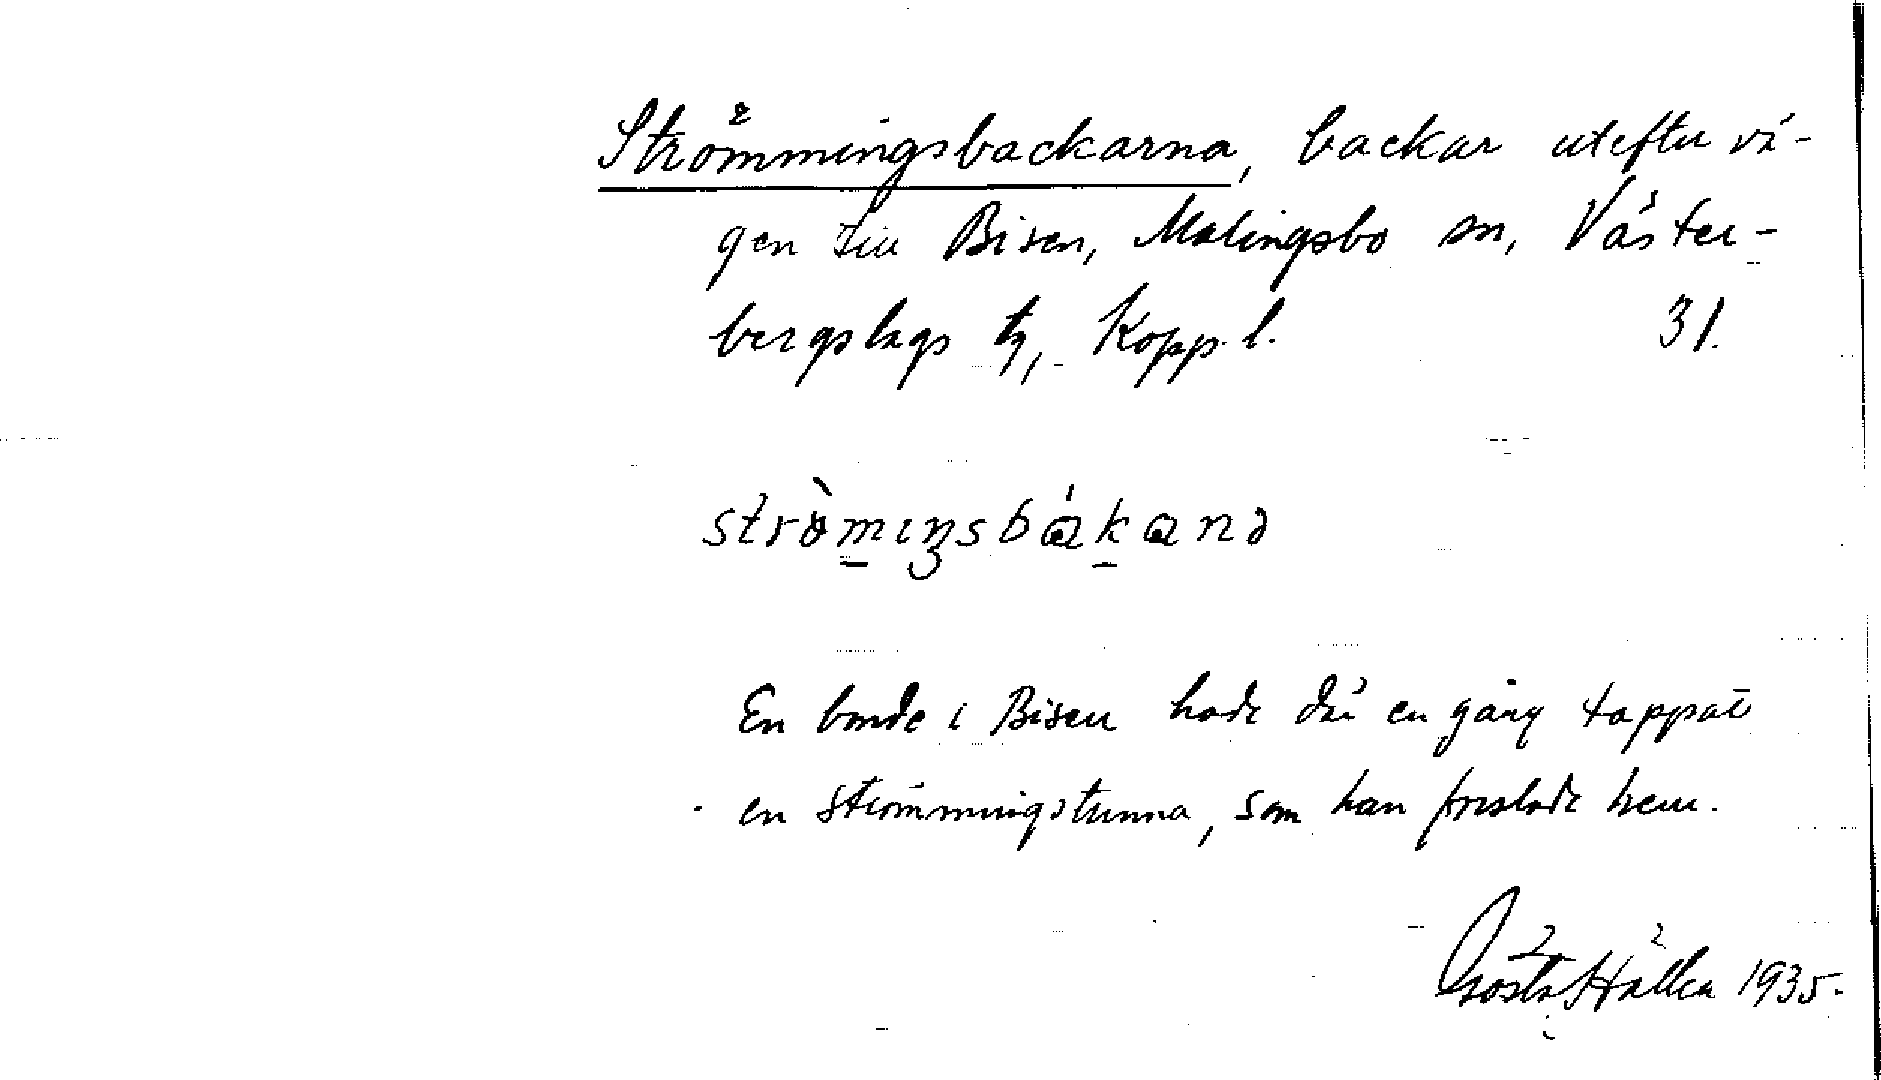 Strömmingsbackarna, backar utefter vä-
gen till Bisen, Malingsbo sn, Väster-
bergslags tg, Kopp. l. 31.
strö̀miŋsbákanə
En bonde i Bisen hade där en gång tappat
en strömmingstunna, som han forslade hem.
Gösta Hallen 1935.